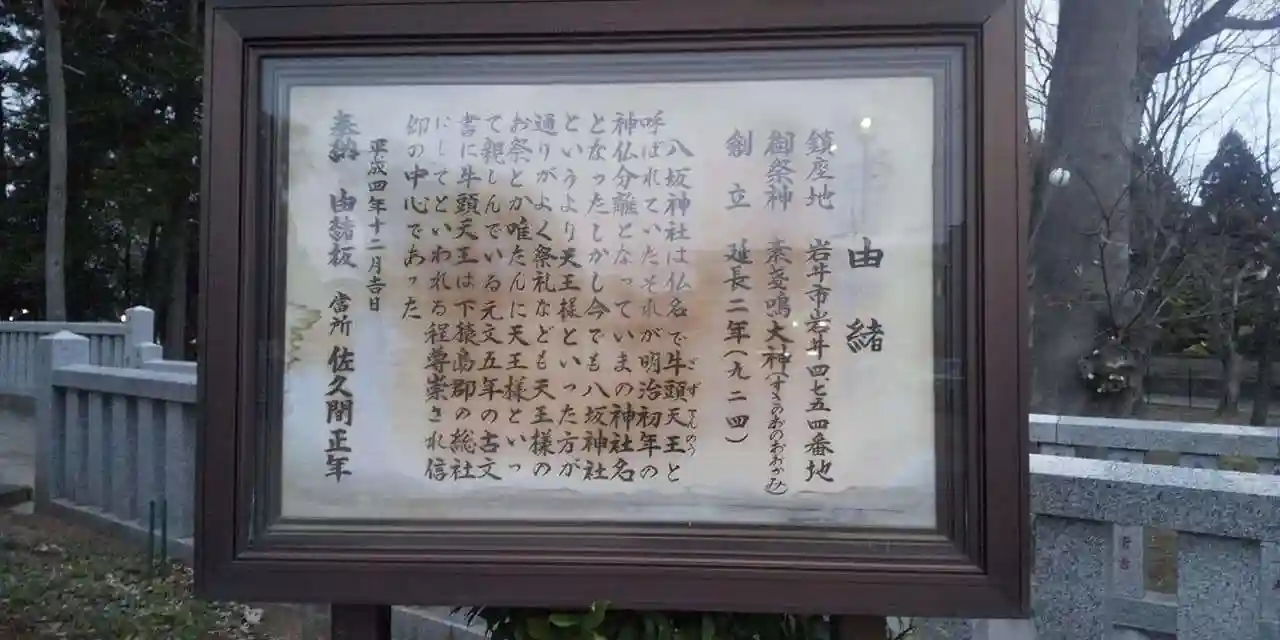 由緒
鎮座地 岩井市岩井四七五四番地
御祭神 素戔鳴大神(すさのおのおおかみ)
創立 延長二年(九二四)
八坂神社は仏名で牛頭天王と
ごずてんのう
呼ばれていたそれが明治初年の
神仏分離となっていまの神社名
となったしかし今でも八坂神社
というより天王様といった方が
通りがよく祭礼なども天王様の
お祭とか唯たんに天王様といっ
て親しんでいる元文五年の古文
書に牛頭天王は下猿島郡の総社
にしてといわれる程尊崇され信
仰の中心であった
平成四年十二月吉日
奉納 由緒板 當所 佐久間正年